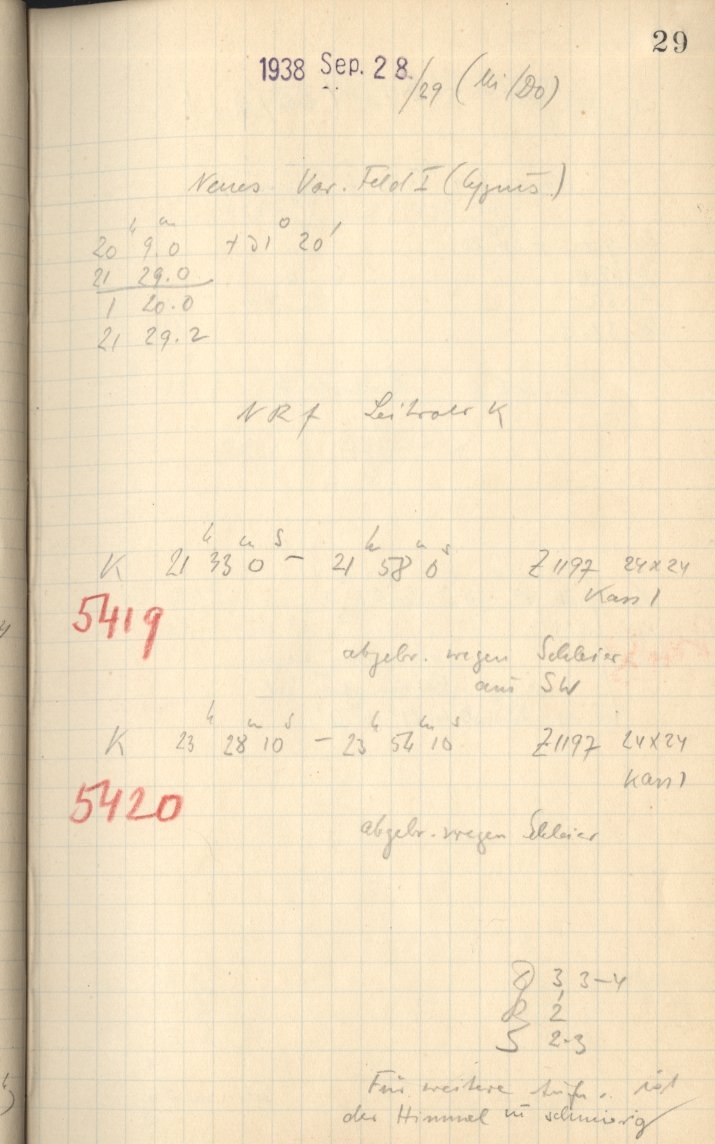 29
1938 Sep. 28./29 (Mi/Do)
Neues Var. Feld I (Cygnus)
20 h 9.0 m +31° 20'
21 29.0
1 20.0
21 29.2
NRf Leitrohr K
K 21 h 33 m 0 s – 21 h 58 m 0 s Z 1197 24x24
Kass 1
5419
abgebr. wegen Schleier
aus SW
K 23 h 28 m 10 s – 23 h 54 m 10 s Z 1197 24x24
Kass 1
5420
abgebr. wegen Schleier
3, 3–4
R 2
S 2-3
Für weitere Aufn. ist
der Himmel zu schmierig